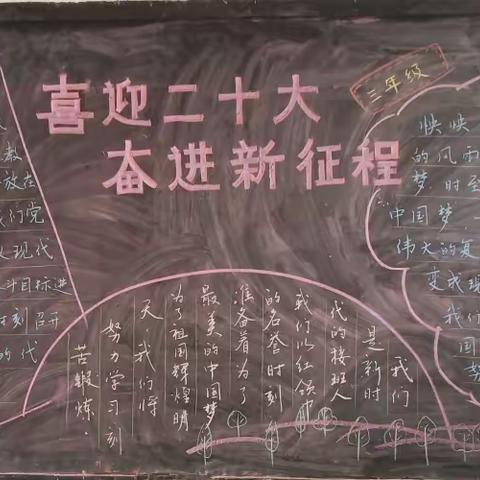 喜迎二十大
奋进新征程
三年级
教
放在
我们党
义现代
斗目标进
时刻召开
的代
我们
是新时
代的接班人
我们以红领巾
的名誉时刻
准备着为了
最美的中国梦
为了祖国辉煌明
天，我们将
努力学习刻
苦锻炼.
的风雨
梦.时至
中国梦.
伟大的复
变成现
我们
国
努